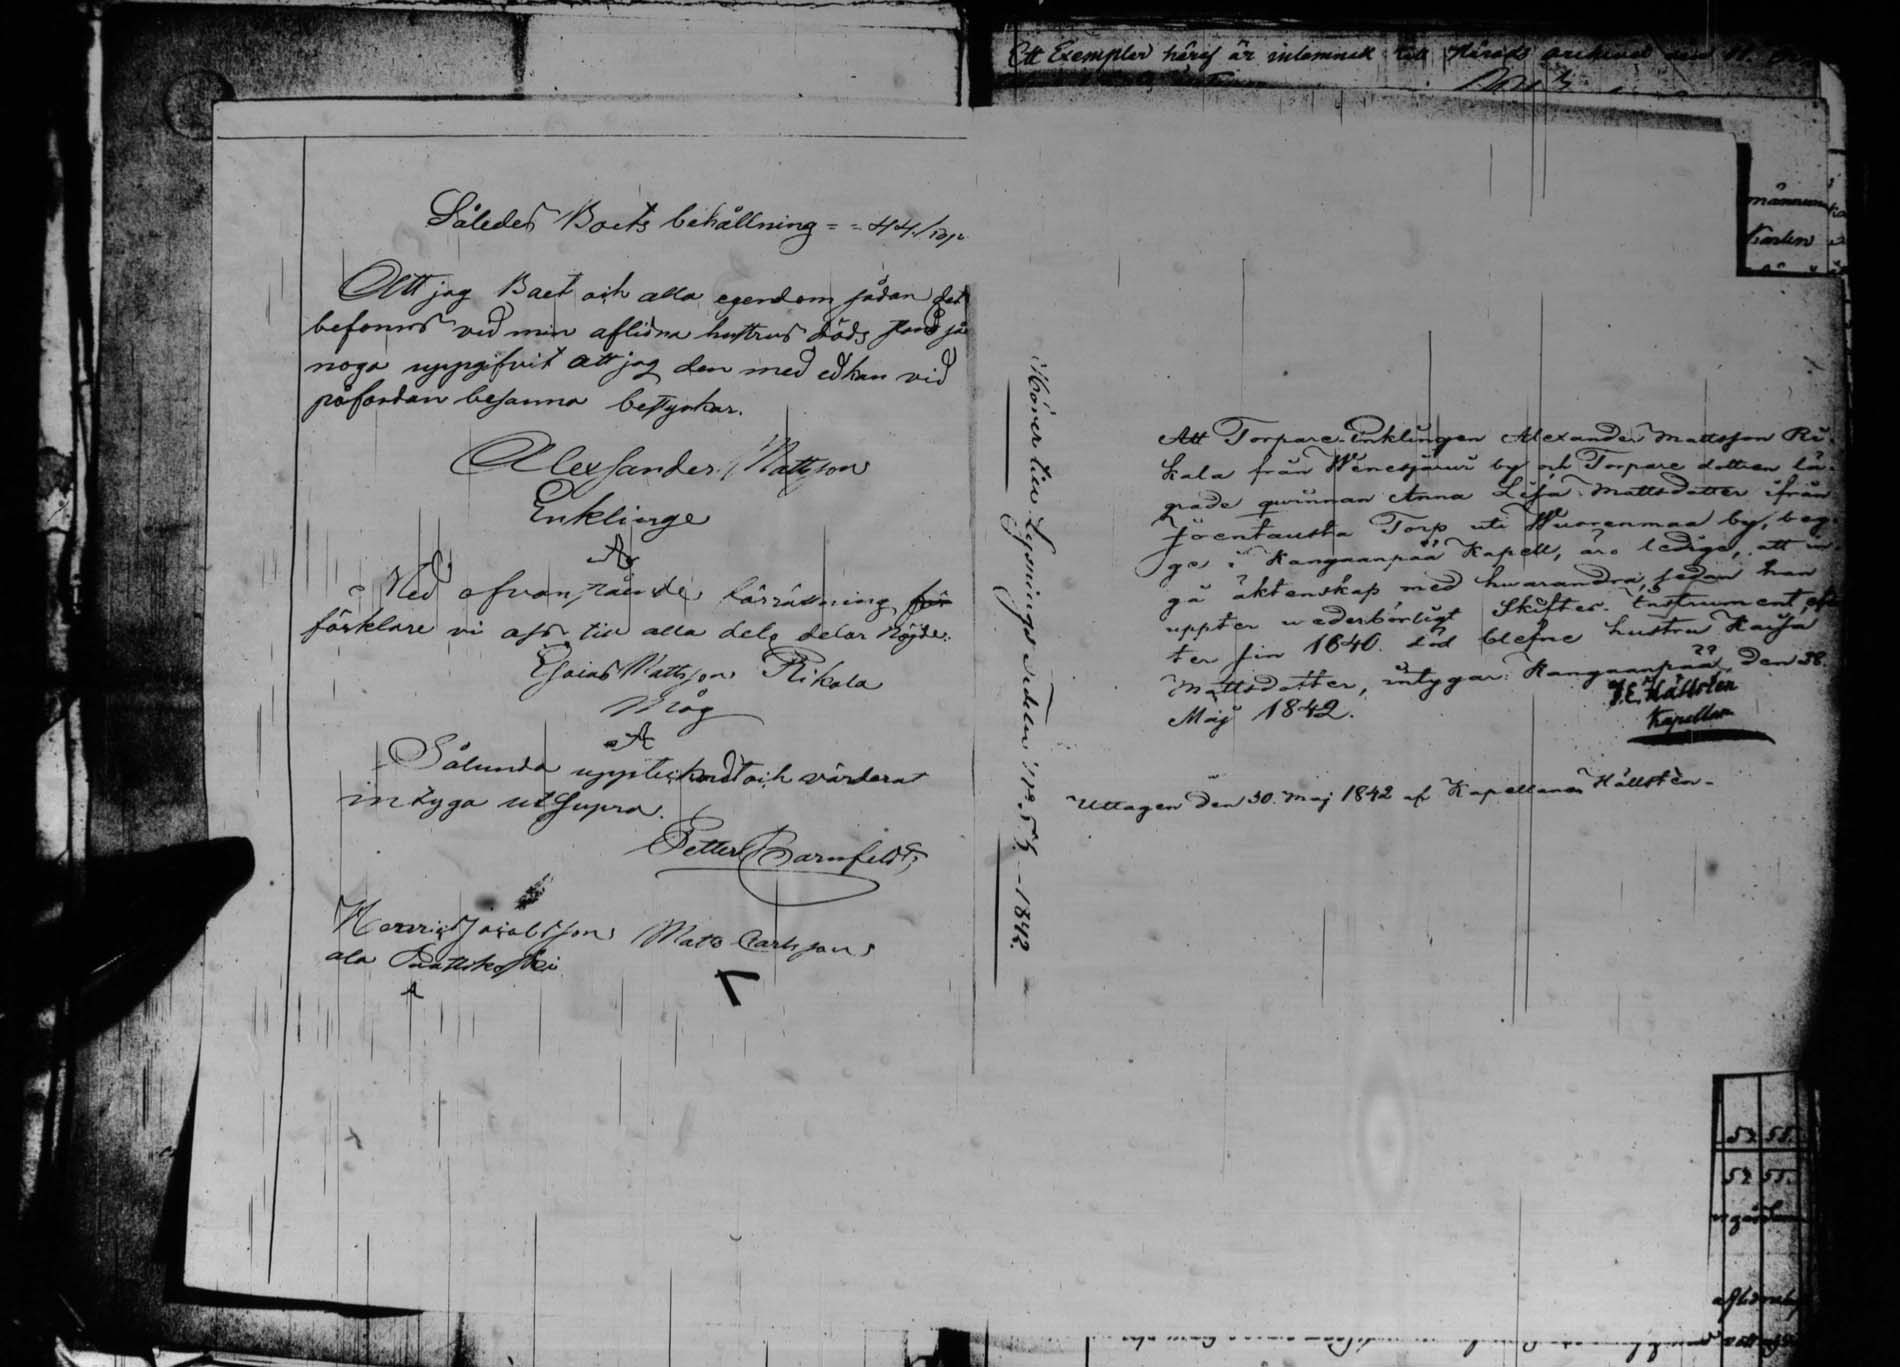 Ett Exemplar häraf är inlemnat till Härads archivet
Således Boets behållning = = 44./
Att jag Boet och alla egendom sådan det
befonns ved min aflidna hustrus döds stond så
noga uppgifvit att jag den med ed kan vid
påfordan besanna bestyrkar.
Alexsander Mattsson
Enklinge
Med ofvanstående förrättning för
förklare vi oss till alla dela delar Nöjde.
Esaias Mattsson Rikala
Måg
Sålunda upptecknadt och värderat
intyga ut supra.
Petter Barnfeldt
Henrich Jacobsson Matts Carlsson
ala
Hörer till Lysnings sedeln N:o 53. - 1842.
Att Torpare-Enklingen Alexander Mattsson Ri-
kala från Wenesjärvi by och Torpare dottren lä-
grade qwinnan Anna Lisa Mattsdotter ifrån
Jöentausta Torp uti Wuorenmaa by, beg-
ge i Kangaanpää Kapell, äro ledige, att in-
gå äktenskap med hwarandra, sedan han
uppter wederbörligt Skiftes-Instrument, ef-
ter sin 1840. död blefne hustru Kaisa
Mattsdotter, intygar: Kangaanpää den 28.
Maj 1842.
J.E. Hällsten
Kapellan
Uttagen den 30. Maj 1842 af Kapellanen Hällstén-
männum
Karlen
52 55.
52 55.